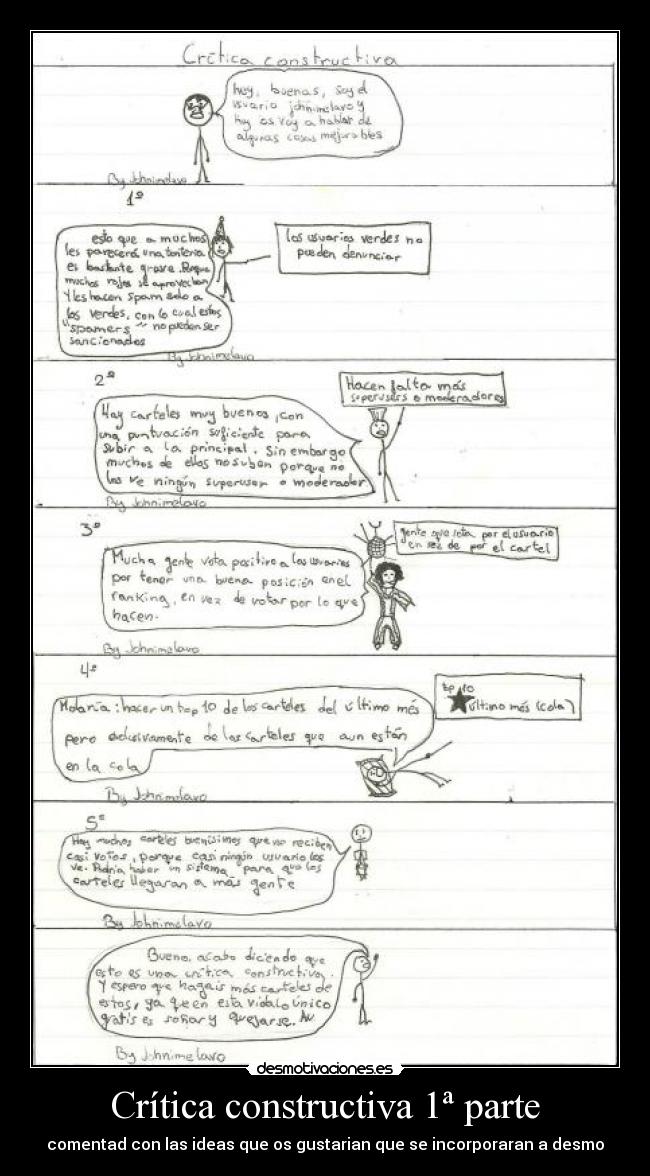 Crítica constructiva
hey, buenas, soy el
usuario johnimelavo y
hoy os voy a hablar de
algunas cosas mejorables
By Johnimelavo
1º
esto que a muchos
les parecerá una tontería
es bastante grave. Porque
muchos rojos se aprovechan
y les hacen spam solo a
los verdes, con lo cual estos
"spamers" no pueden ser
sancionados
los usuarios verdes no
pueden denunciar
By Johnimelavo
2º
Hacen falta más
superusers o moderadores
Hay carteles muy buenos, con
una puntuación suficiente para
subir a la principal. Sin embargo
muchos de ellos no suben porque no
los ve ningún superuser o moderador
By Johnimelavo
3º
gente que vota por el usuario
en vez de por el cartel
Mucha gente vota positivo a los usuarios
por tener una buena posición en el
ranking, en vez de votar por lo que
hacen.
By Johnimelavo
4º
top 10
último mes (cola)
Molaría: hacer un top 10 de los carteles del último mes
pero exclusivamente de los carteles que aun están
en la cola
By Johnimelavo
5º
Hay muchos carteles buenísimos que no reciben
casi votos, porque casi ningún usuario los
ve. Podría haber un sistema para que los
carteles llegaran a más gente
By Johnimelavo
Bueno, acabo diciendo que
esto es una crítica constructiva.
Y espero que hagais más carteles de
estos, ya que en esta vida lo único
gratis es soñar y quejarse.
By Johnimelavo
desmotivaciones.es
Crítica constructiva 1ª parte
comentad con las ideas que os gustarian que se incorporaran a desmo